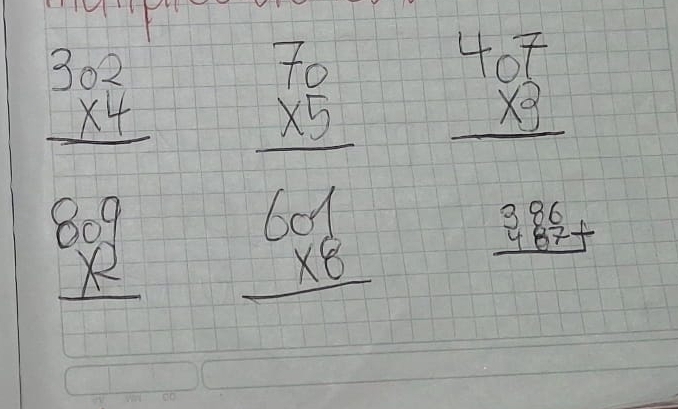 302 70 407
X4 X5 X3
809 601 386
X2 X8 487+